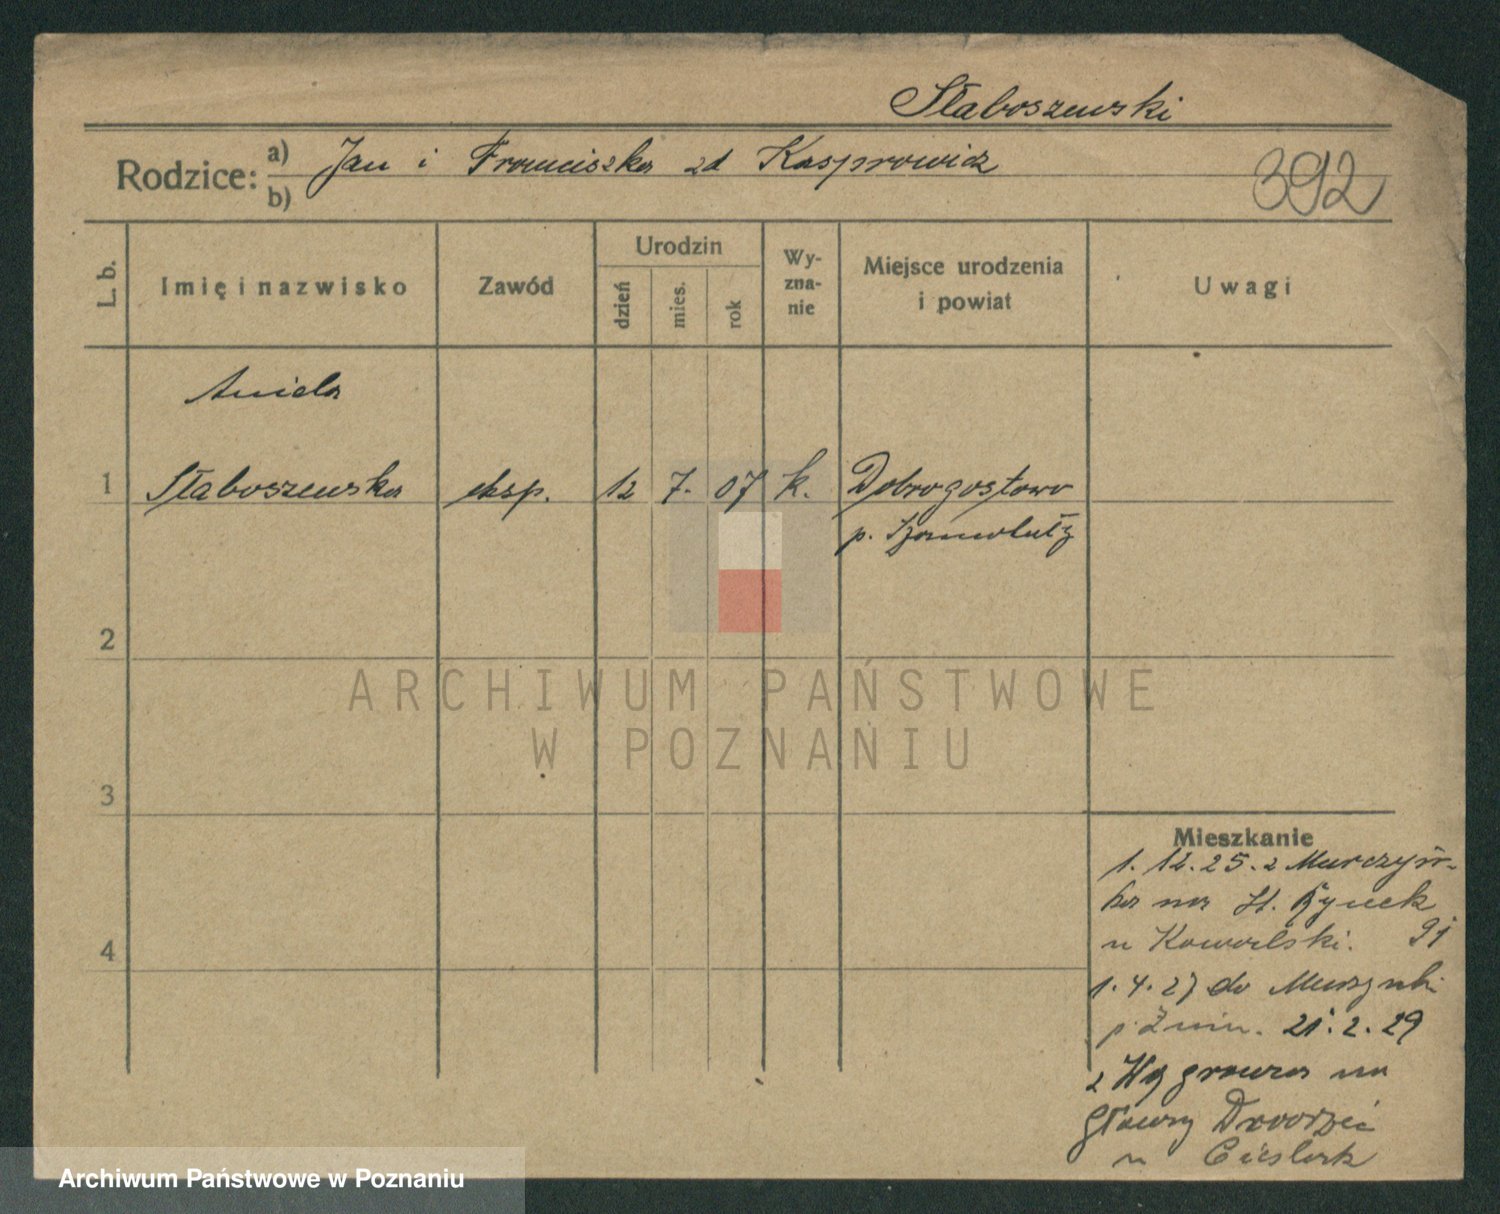 Słaboszewski
Rodzice: a) Jan i Franciszka zd Kasprowicz
b)
392
L. b.
Imię i nazwisko
Zawód
Urodzin
dzień
mies.
rok
Wy-
zna-
nie
Miejsce urodzenia
i powiat
Uwagi
Aniela
1 Słaboszewska eksp. 12 7. 07 k. Dobrogostowo
p. Szamotuły
2
3
4
ARCHIWUM PAŃSTWOWE
W POZNANIU
Mieszkanie
1. 12. 25. z Murczyń-
ka na St. Rynek
u Kowalski. 91
1. 4. 27 do
p. Żnin. 21. 2. 29
z Wągrowca na
główny Dworzec
u Cieslak
Archiwum Państwowe w Poznaniu